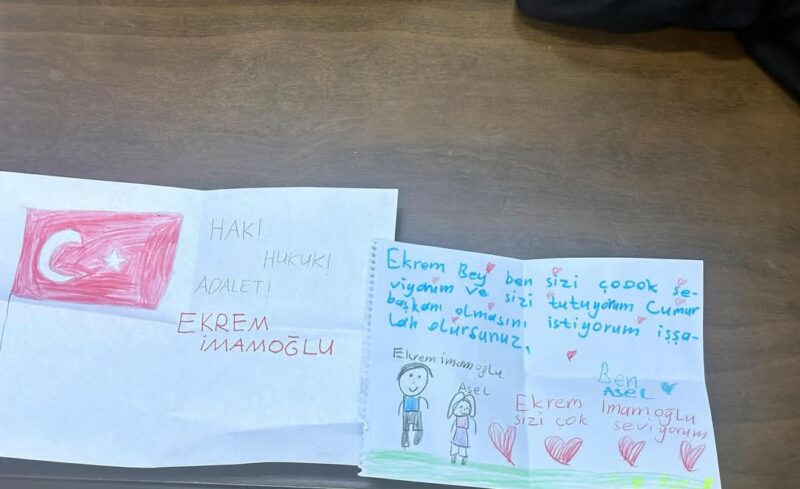 HAK!
HUKUK!
ADALET!
EKREM
İMAMOĞLU
Ekrem Bey ben sizi çooook se-
viyorum ve sizi tutuyorum Cumur
başkanı olmasını istiyorum işşa-
lah olursunuz.
Ekrem imamoğlu
Asel
Ben
ASEL
Ekrem İmamoğlu
sizi çok seviyorum